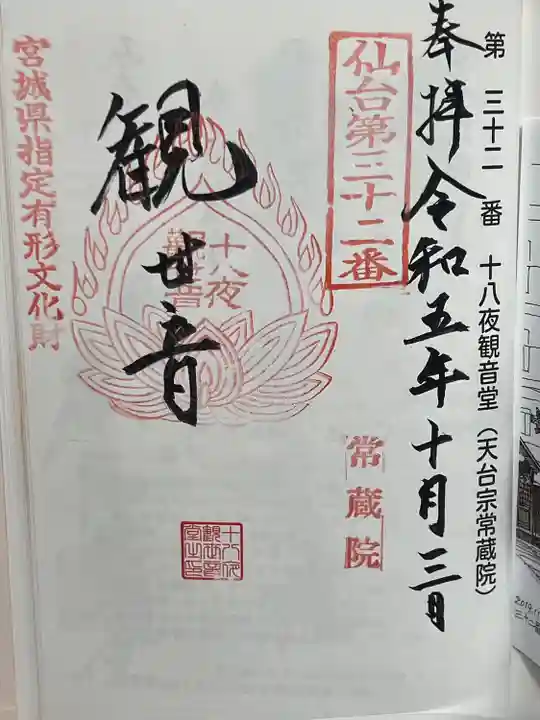 第 三十二 番 十八夜観音堂(天台宗常蔵院)
奉拝令和五年十月三日
仙台第三十二番
常蔵院
観世音
十八夜
観世音
宮城県指定有形文化財
2019.11
三十二番